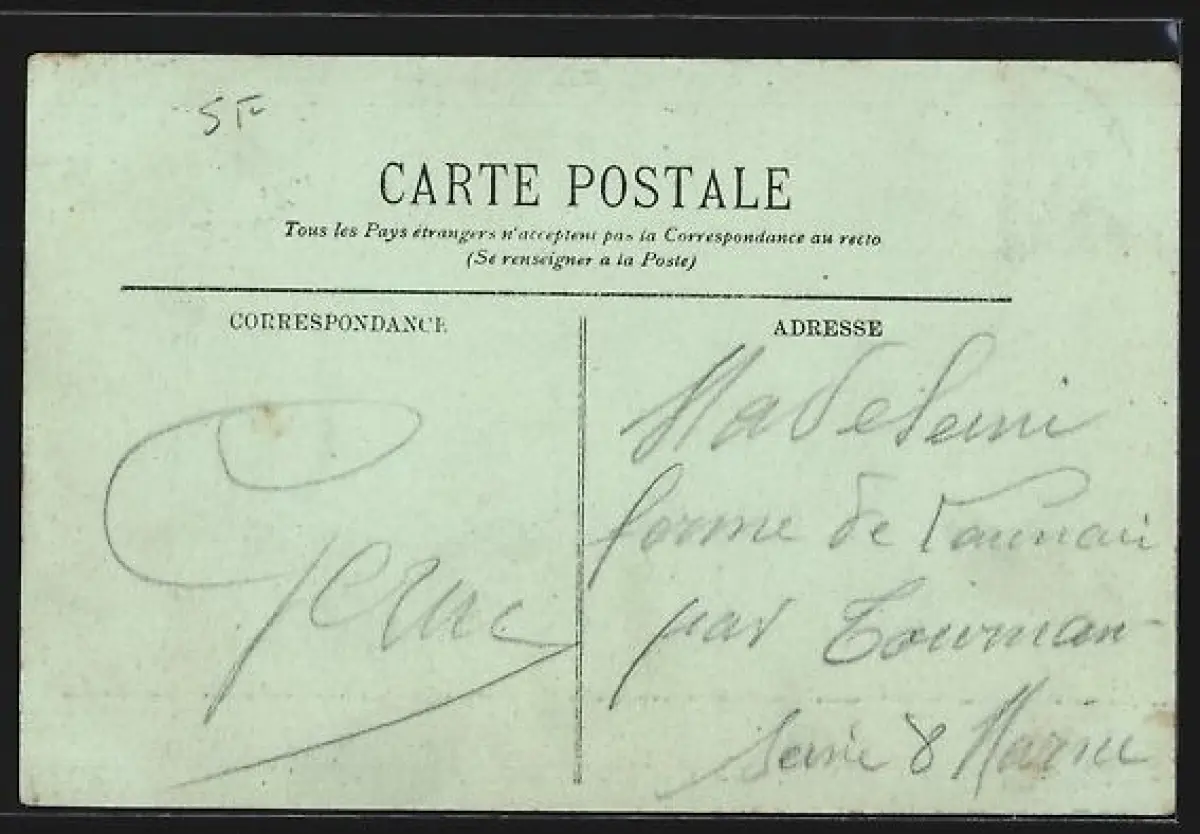 5 F
CARTE POSTALE
Tous les Pays étrangers n'acceptent pas la Correspondance au recto
(Se renseigner a la Poste)
CORRESPONDANCE
ADRESSE
ferme de
par Tournan
Seine & Marne